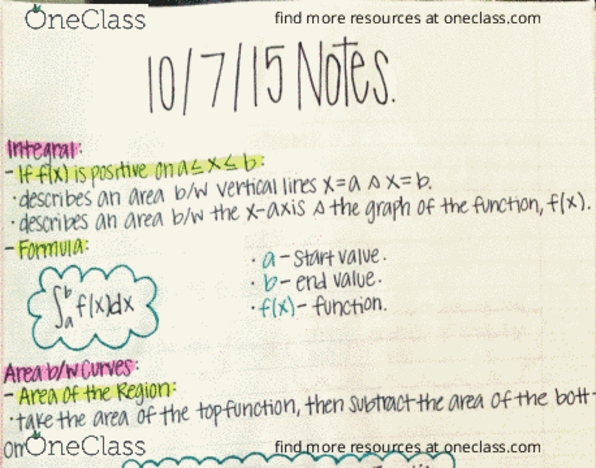 OneClass find more resources at oneclass.com
10/7/15 Notes.
Integral:
- If f(x) is positive on a ≤ x ≤ b:
· describes an area b/w vertical lines x=a & x=b.
· describes an area b/w the x-axis & the graph of the function, f(x).
- Formula:
· a - start value.
· b - end value.
· f(x) - function.
∫ₐᵇ f(x)dx
Area b/w Curves:
- Area of the Region:
· take the area of the top function, then subtract the area of the bott-
om
OneClass find more resources at oneclass.com